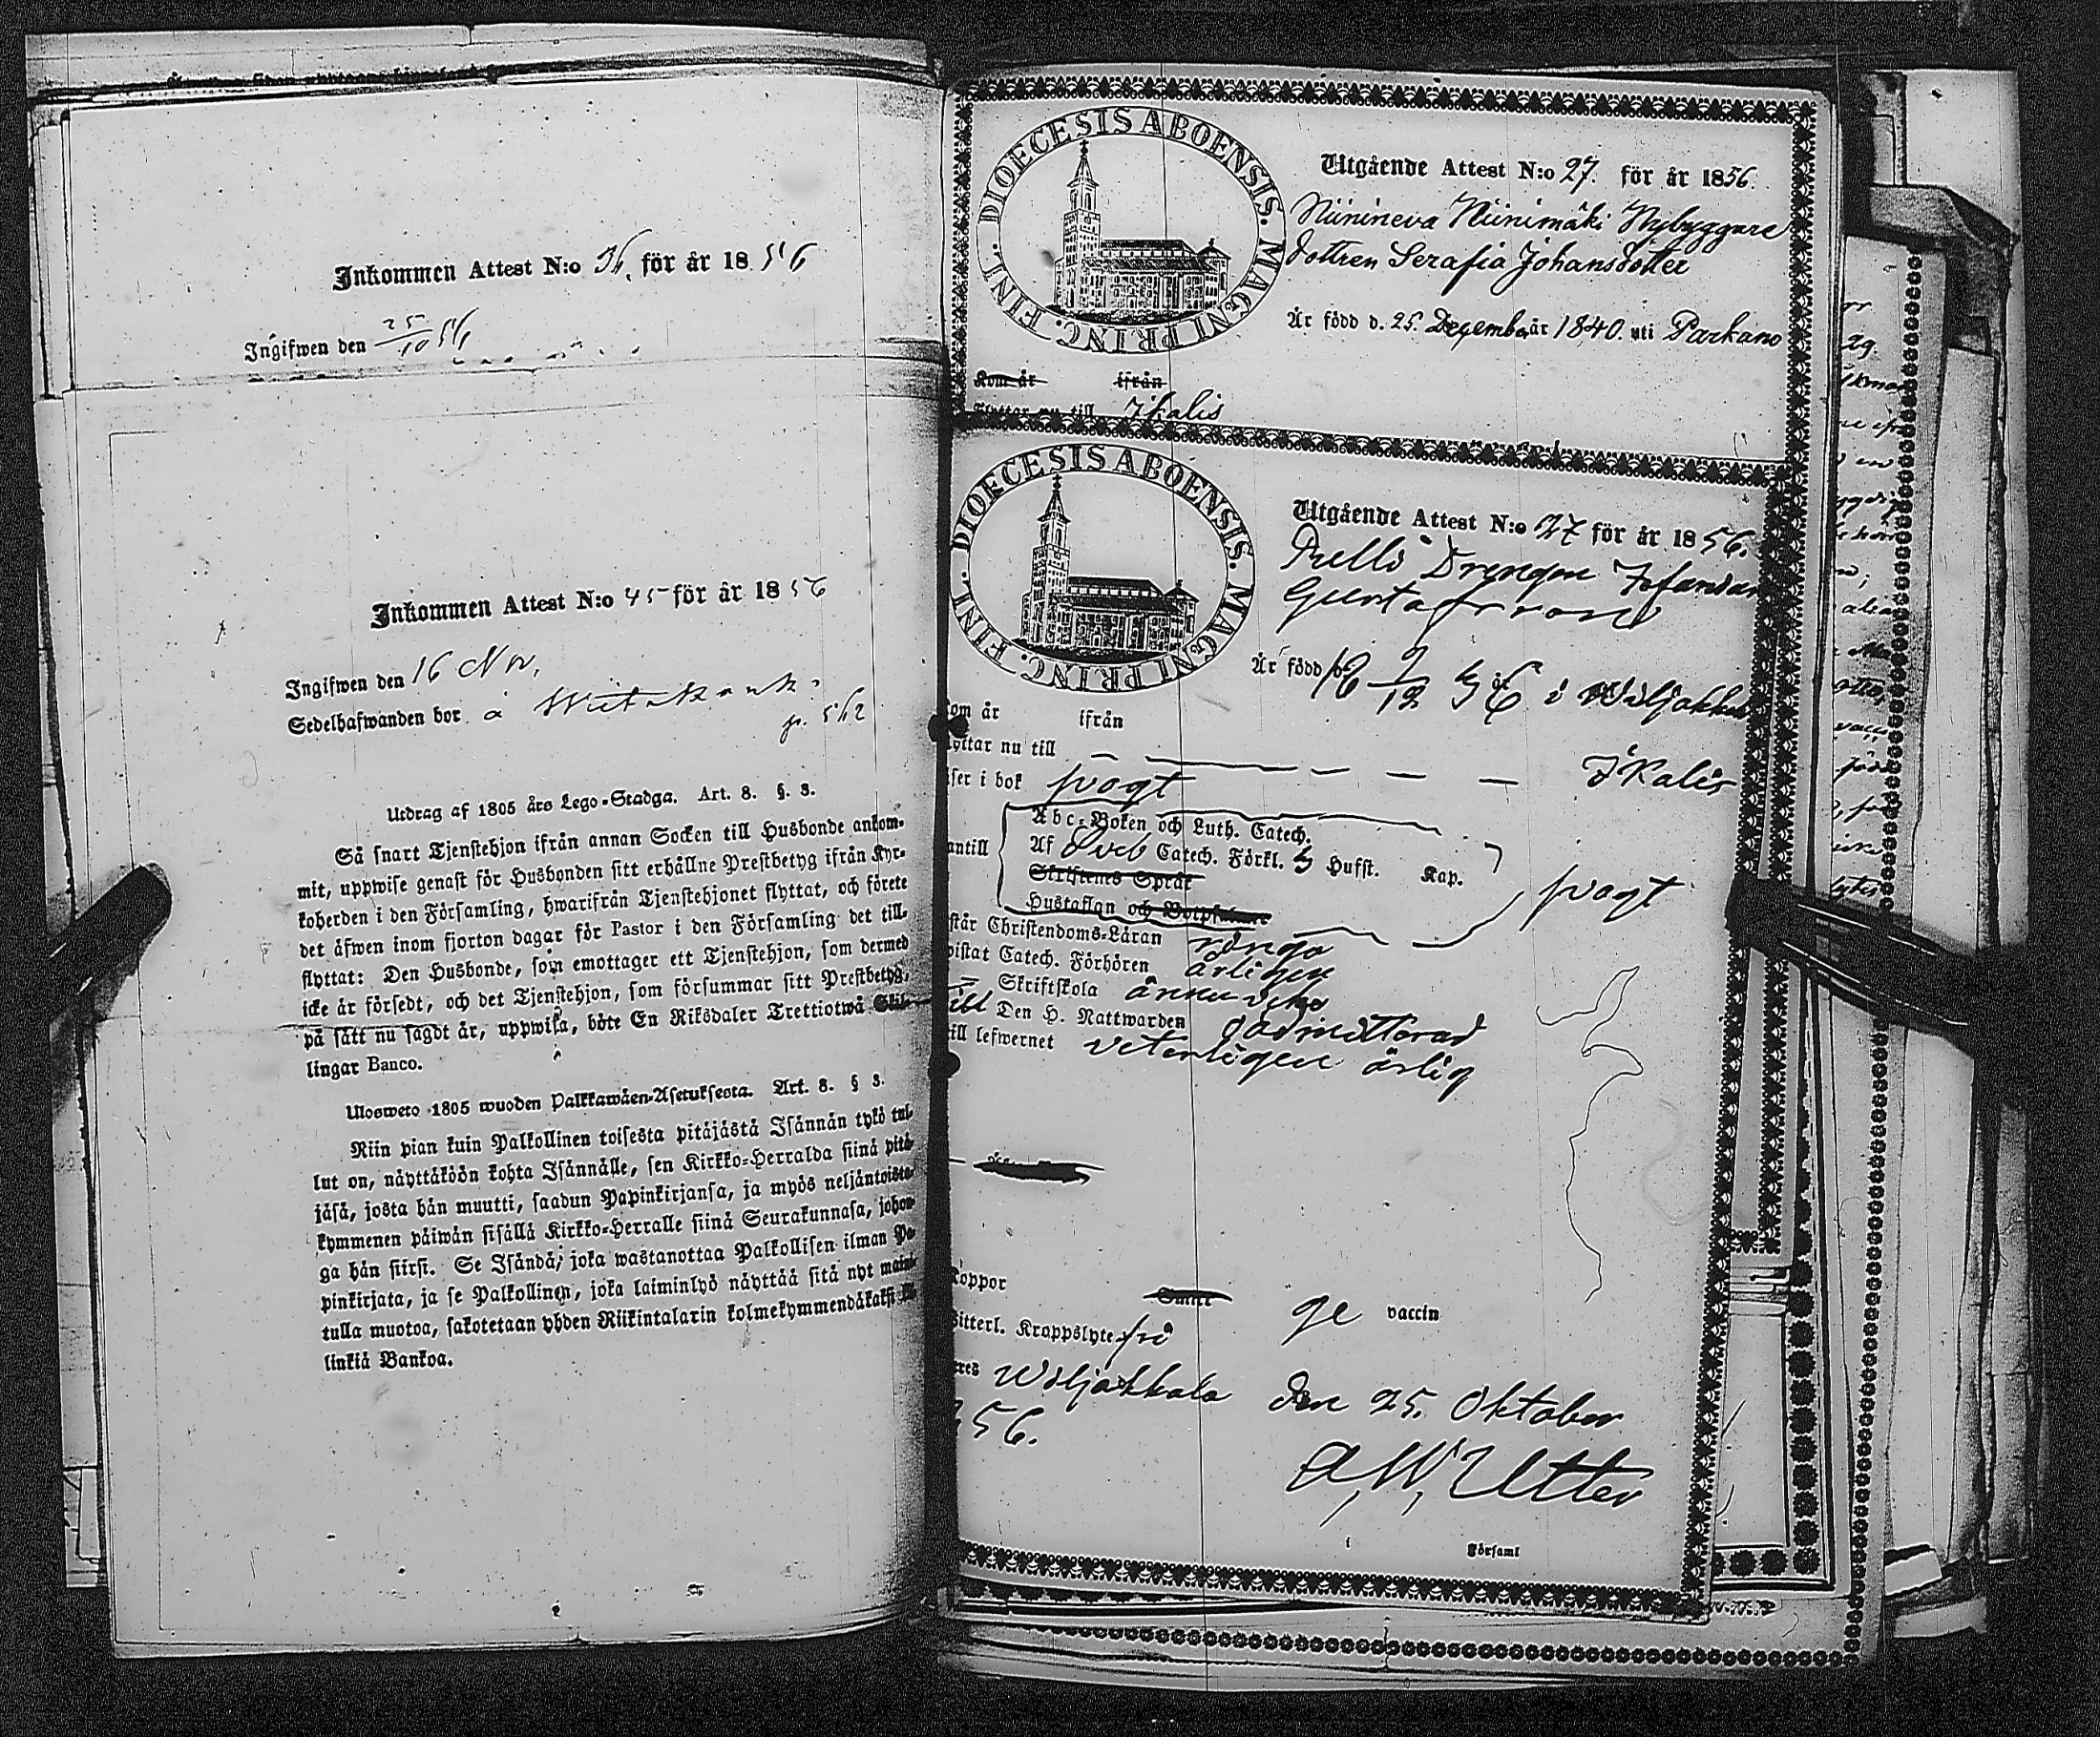 Inkommen Attest N:o 36. för år 1856
Ingifwen den 25/10 56
Inkommen Attest N:o 45 för år 1856
Ingifwen den 16 Nov.
Sedelhafwanden bor å
p. 562
Utdrag af 1805 års Lego-Stadga. Art. 8. §. 3.
Så snart Tjenstehjon ifrån annan Socken till Husbonde ankom-
mit, uppwise genast för Husbonden sitt erhållne Prestbetyg ifrån Kyr-
koherden i den Församling, hwarifrån Tjenstehjonet flyttat, och förete
det äfwen inom fjorton dagar för Pastor i den Församling det till-
flyttat: Den Husbonde, som emottager ett Tjenstehjon, som dermed
icke är försedt, och det Tjenstehjon, som försummar sitt Prestbetyg,
på sätt nu sagdt är, uppwisa, böte En Riksdaler Trettiotwå Skil-
lingar Banco.
Ulosweto 1805 wuoden Palkkawäen-Asetuksesta. Art. 8. § 3.
Niin pian kuin Palkollinen toisesta pitäjästä Isännän tykö tul-
lut on, näyttäköön kohta Isännälle, sen Kirkko-Herralda siinä pitä-
jäsä, josta hän muutti, saadun Papinkirjansa, ja myös neljäntoista-
kymmenen päiwän sisällä Kirkko-Herralle siinä Seurakunnasa, johon-
ga hän siirsi. Se Isändä, joka wastanottaa Palkollisen ilman Pa-
pinkirjata, ja se Palkollinen, joka laiminlyö näyttää sitä nyt mainit-
tulla muotoa, sakotetaan yhden Riikintalarin kolmekymmendäkaksi
linkiä Bankoa.
DIOECESIS ABOENSIS. MAGNI PRINC. FINL.
Utgående Attest N:o 27. för år 1856.
Niinineva Niinimäki Nybyggare
dottren Serafia Johansdotter
Är född d. 25. December år 1840. uti Parkano
Kom år ifrån
Flyttar nu till Ikalis
DIOECESIS ABOENSIS. MAGNI PRINC. FINL.
Utgående Attest N:o 27 för år 1856.
Drengen
Gustafsson
Är född
Kom år ifrån
Flyttar nu till Ikalis
Läser i bok svagt
Abc-Boken och Luth. Catech.
antill Af Sveb Catech. Förkl. 5 Hufst. Kap.
Skriftens Språk svagt
Hustaflan och Botpsalmer
står Christendoms-Läran ringa
wistat Catech. Förhören årligen
Skriftskola ännu icke
till Den H. Nattwarden oadmitterad
till lefwernet veterligen ärlig
Koppor ge vaccin
Witterl. Kroppslyte fri
Wiljakkala den 25. Oktober
56.
A. W. Utter
i Församl